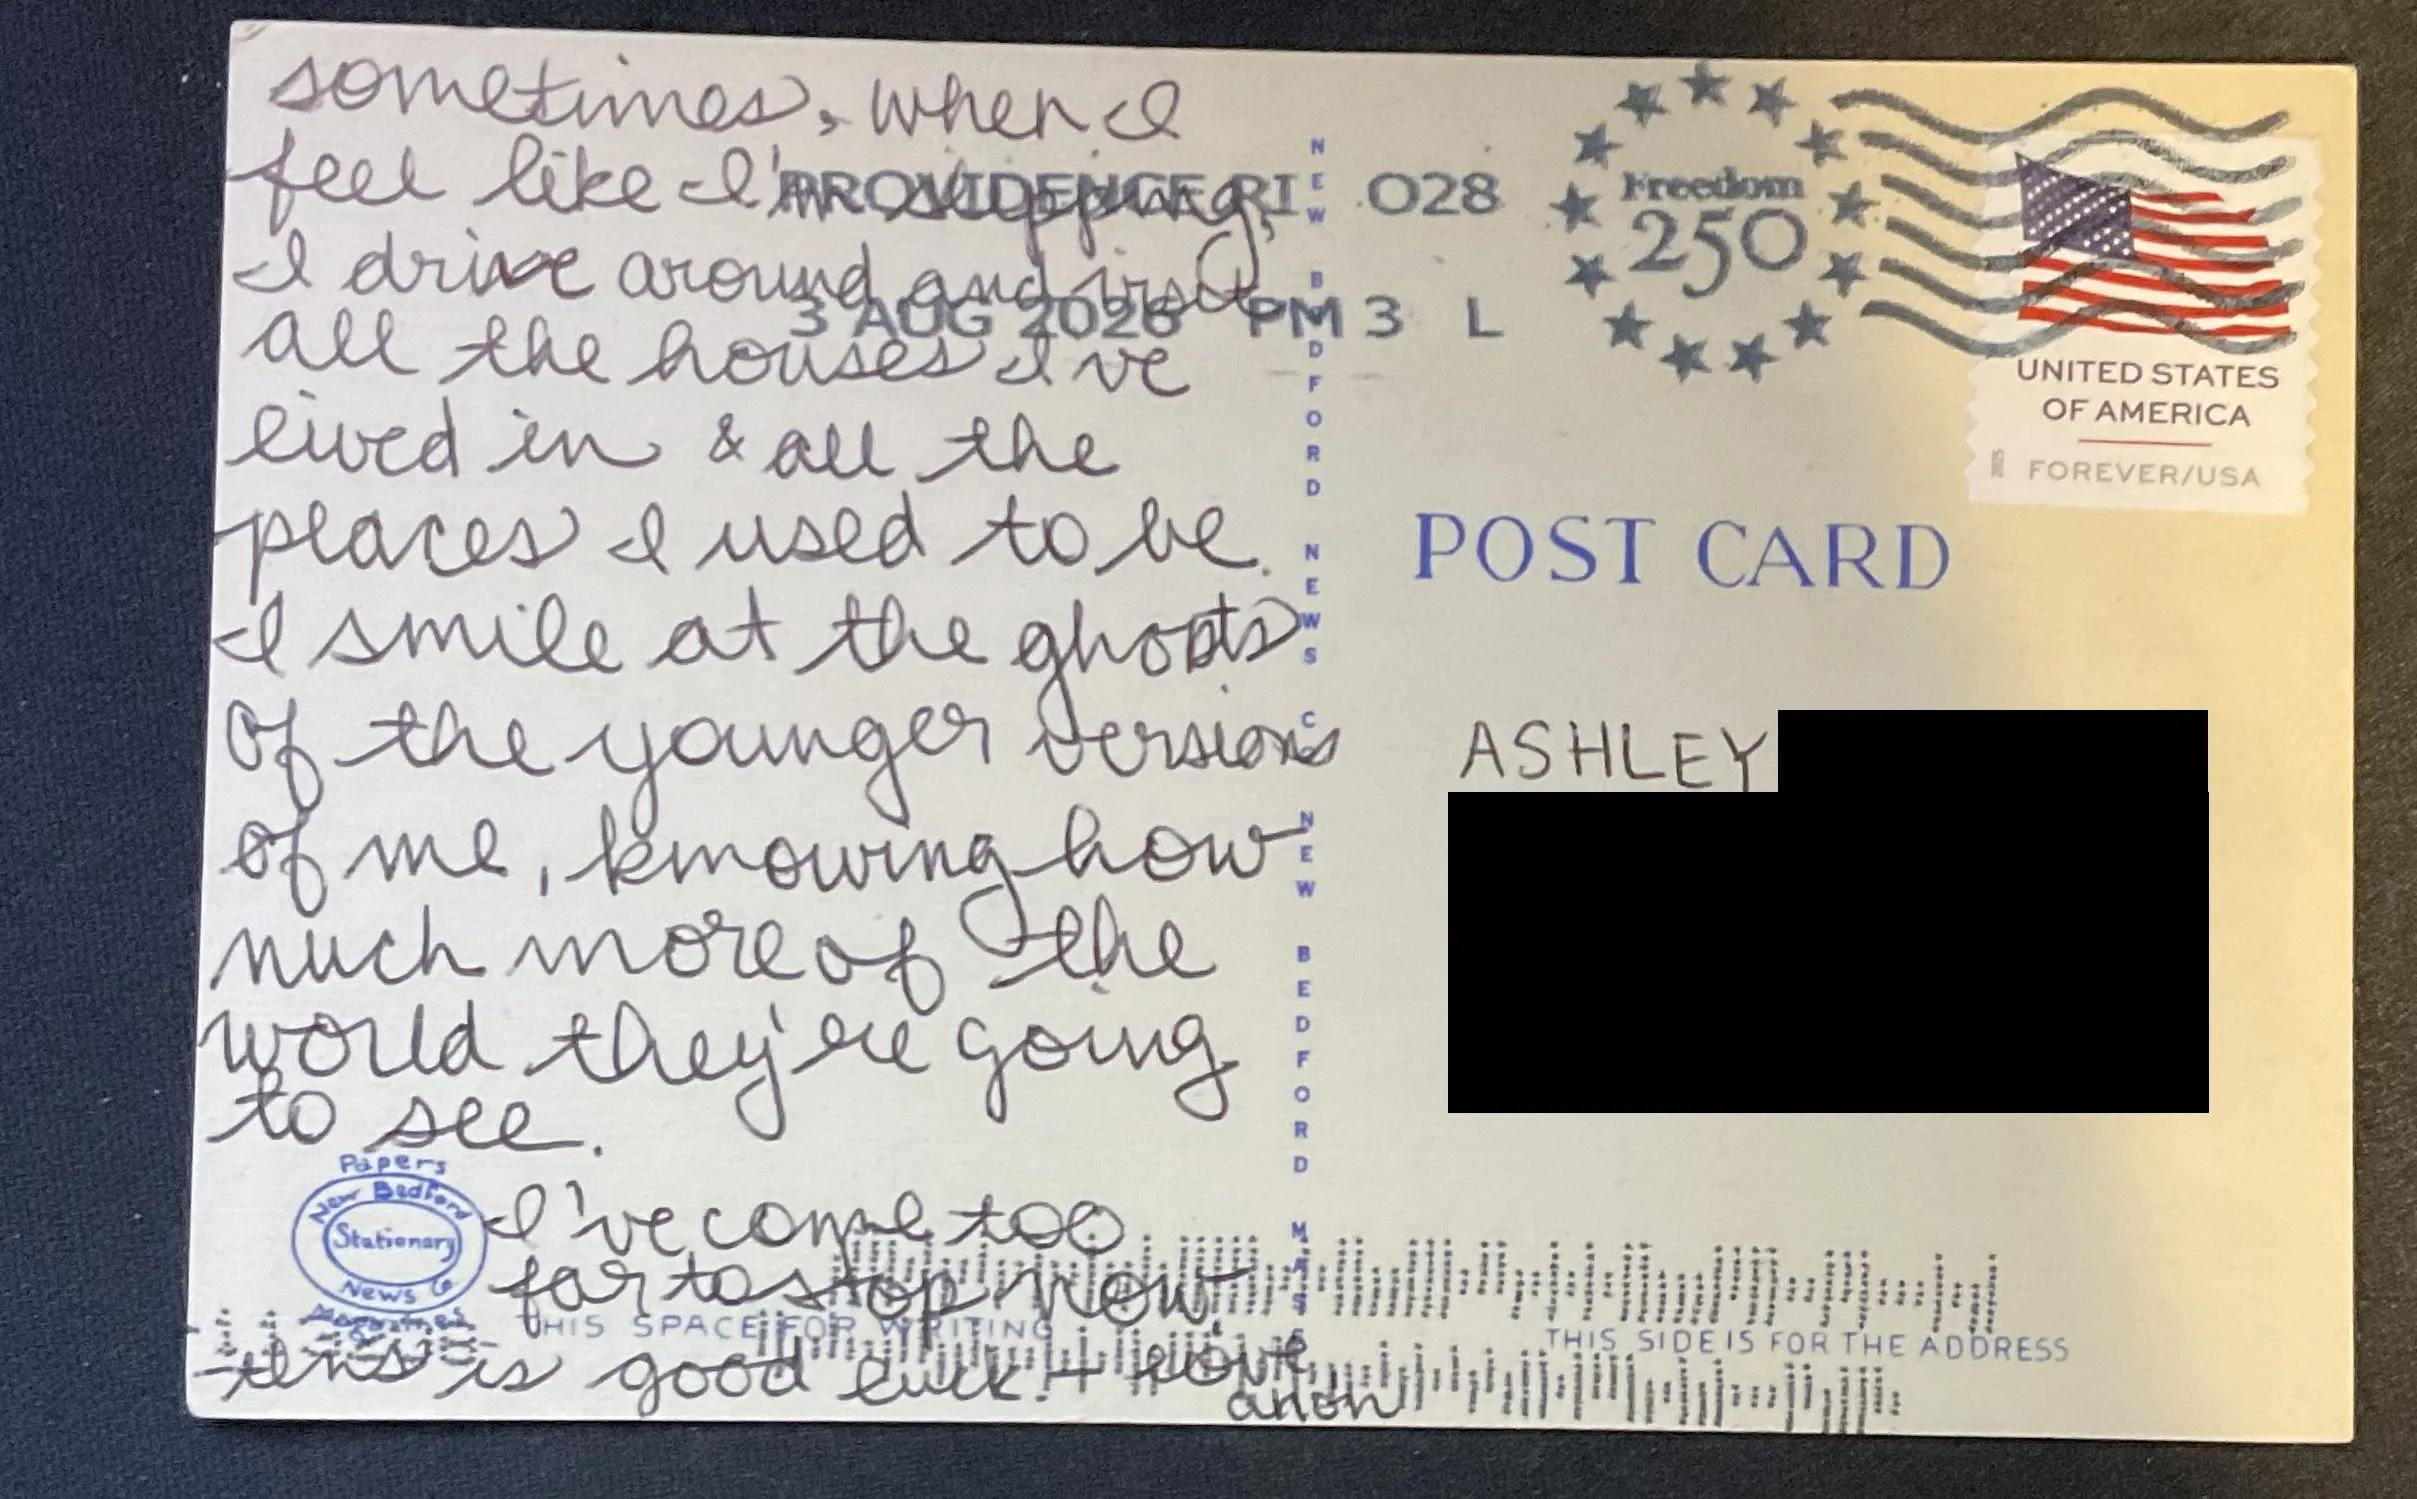 sometimes, when I
feel like I'm slipping,
I drive around and visit
all the houses I've
lived in & all the
places I used to be.
I smile at the ghosts
of the younger versions
of me, knowing how
much more of the
world they're going
to see.
I've come too
far to stop now.
this is good luck! + love
anon
Papers
New Bedford
Stationary
News Co
THIS SPACE FOR WRITING
NEW BEDFORD NEWS CO NEW BEDFORD MASS
PROVIDENCE RI 028
3 AUG 2026 PM 3 L
Freedom
250
UNITED STATES
OF AMERICA
FOREVER/USA
2025
POST CARD
ASHLEY
THIS SIDE IS FOR THE ADDRESS